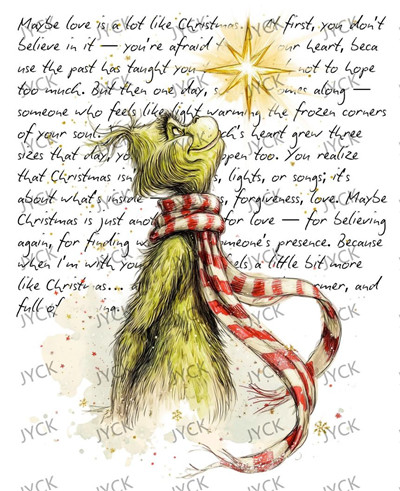 Maybe love is a lot like Christmas... At first, you don't
believe in it — you're afraid t your heart, beca
use the past has taught you not to hope
too much. But then one day, s comes along —
someone who feels like light warming the frozen corners
of your soul. ch's heart grew three
sizes that day, yo open too. You realize
that Christmas isn s, lights, or songs; it's
about what's inside , forgiveness, love. Maybe
Christmas is just anot for love — for believing
again, for finding w omeone's presence. Because
when I'm with you eels a little bit more
like Christmas... a rmer, and
full of ning.
JYCK